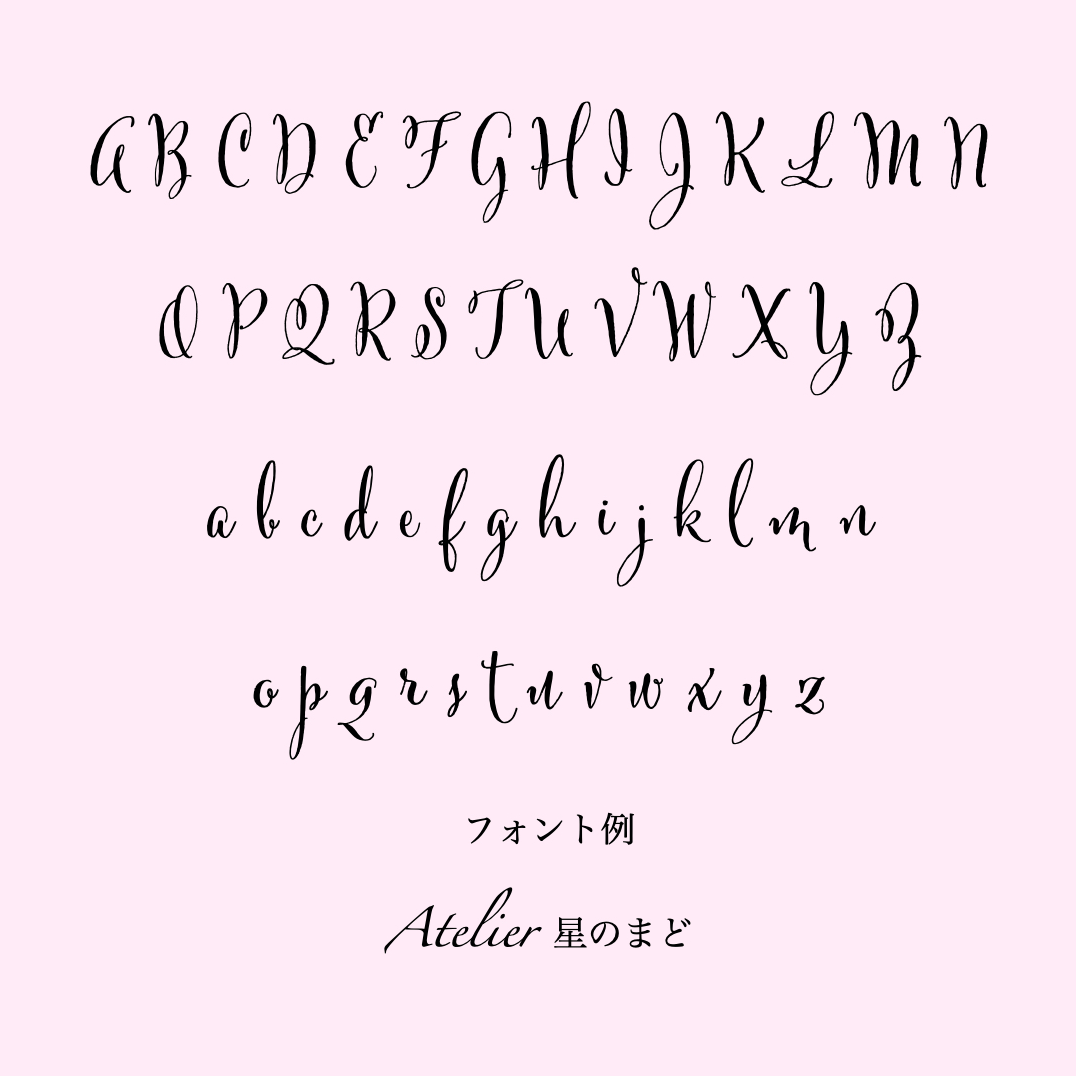 A B C D E F G H I J K L M N
O P Q R S T U V W X Y Z
a b c d e f g h i j k l m n
o p q r s t u v w x y z
フォント例
Atelier 星のまど